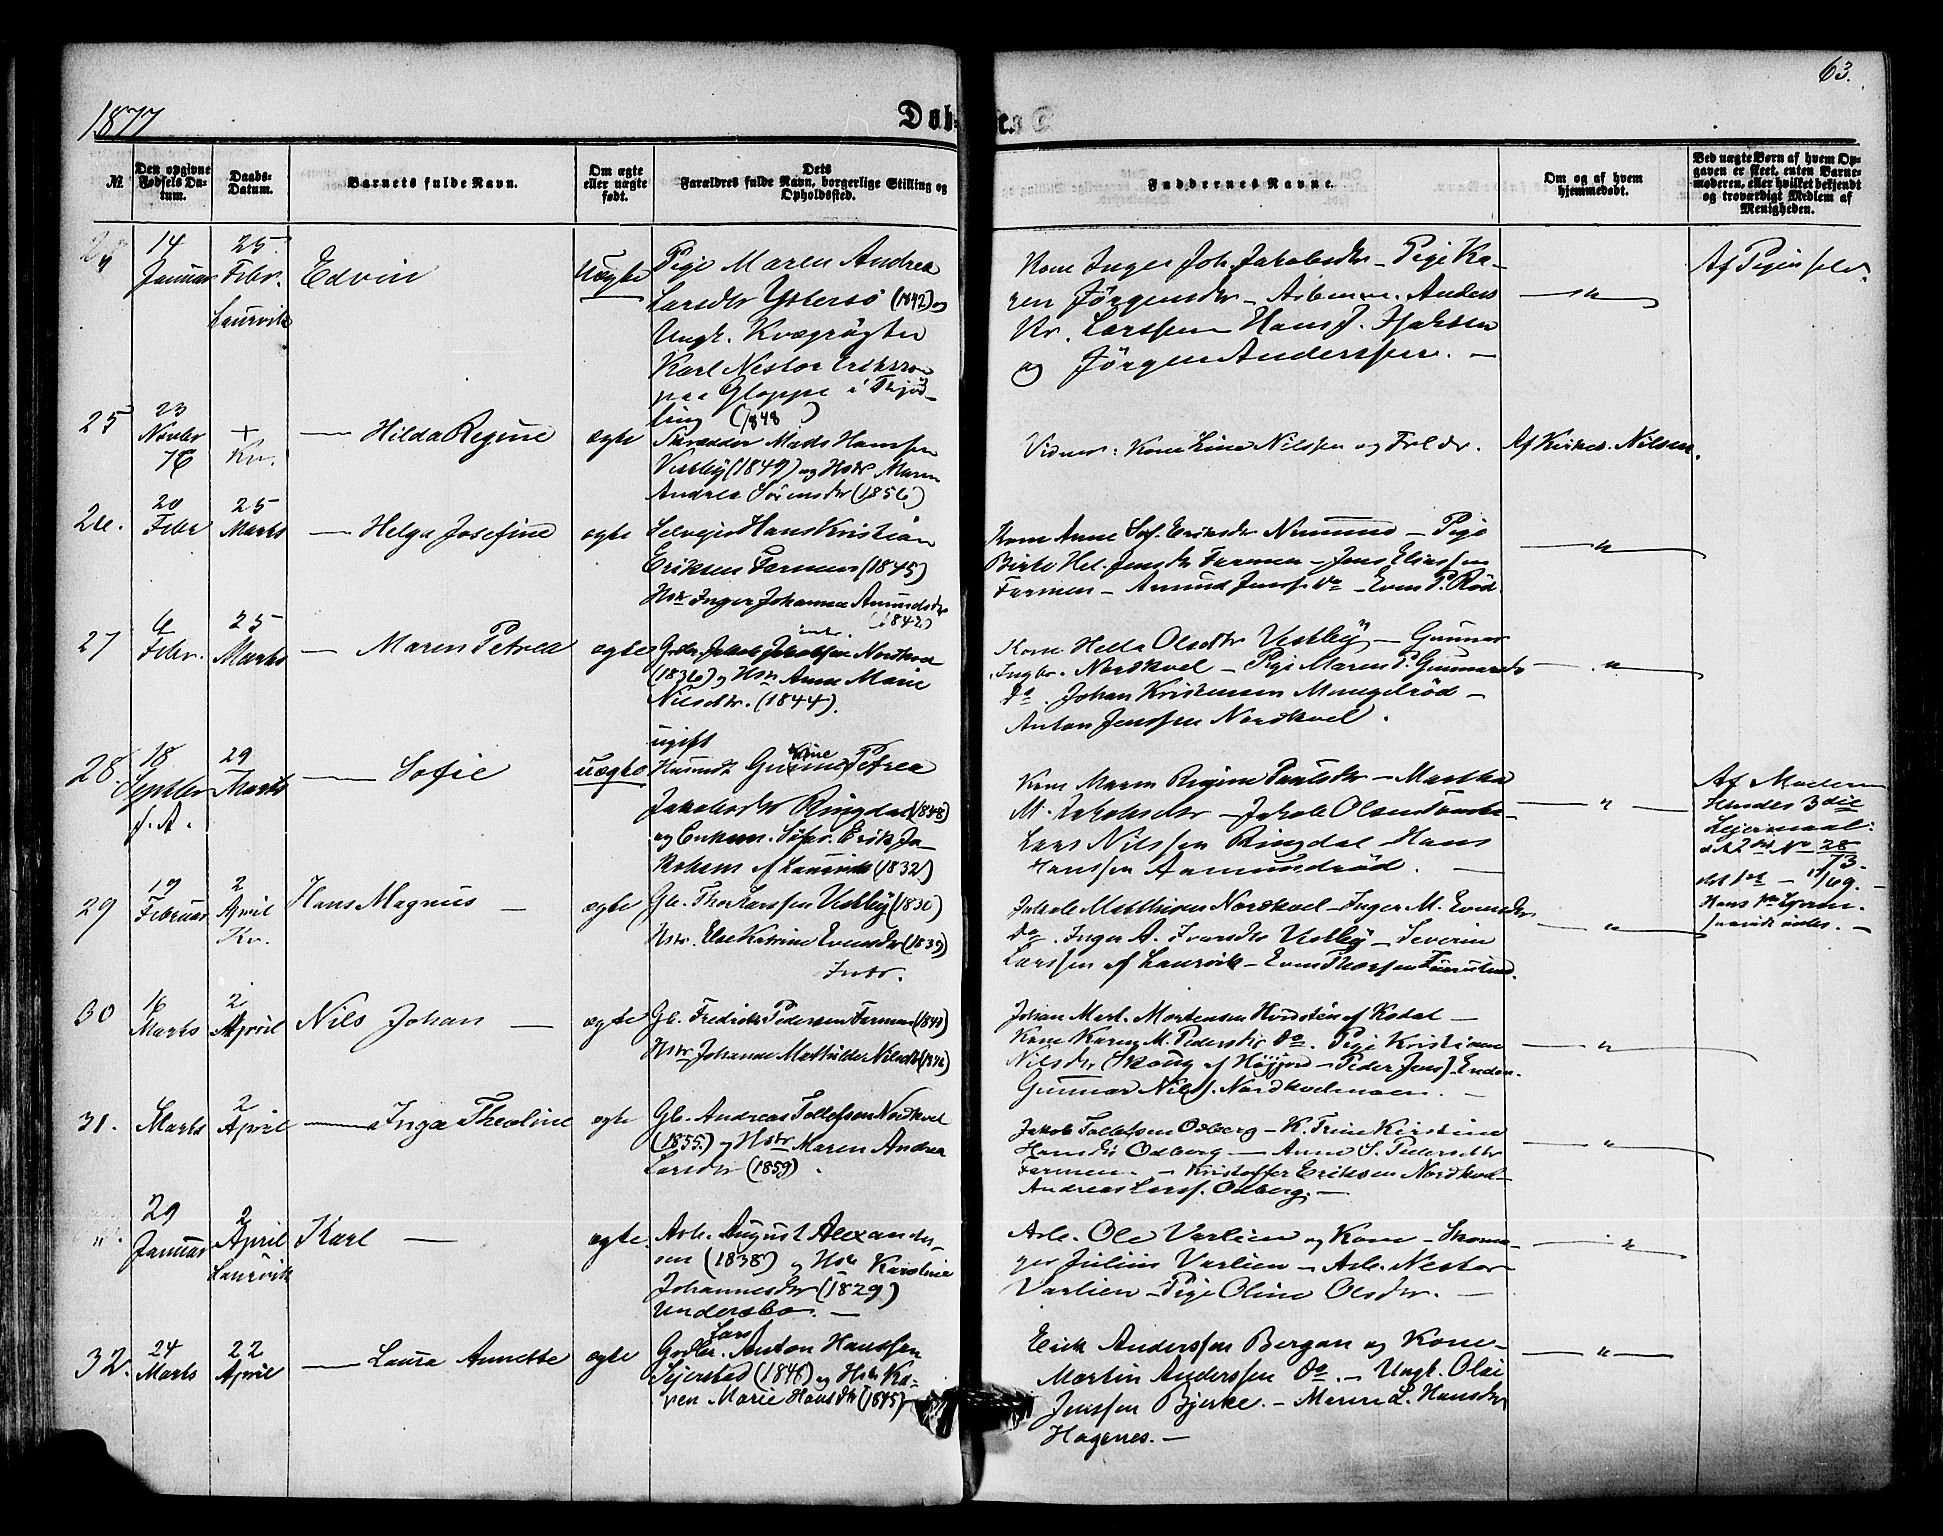 63.
1877
Døb-
№
Den opgivne Fødsels Datum.
Daabs-Datum.
Barnets fulde Navn.
Om ægte eller uægte født.
Dets Forældres fulde Navn, borgerlige Stilling og Opholdssted.
Faddernes Navne.
Om og af hvem hjemmedøbt.
Ved uægte Børn af hvem Opgaven er skeet, enten Barnemoderen, eller hvilket bekjendt og troværdigt Medlem af Menigheden.
14 Januar
25 Febr. Laurvik
Edvin
Uægte
Pige Maren Andrea
Larsdtr Ystersö (1842) og
Ungk. Kvægrögter
Karl Nestor Eriksson
paa Gloppe i Thjöd-
ling (1848)
Kone Inger Joh. Jakobsdtr – Pige Ka-
ren Jörgensdtr – Arbm. Anders
Kr. Larssen Hans J. Isaksen
og Jörgen Anderssen. –
– " –
Af Pigen selv.
25
23 Novbr 76
+ Kv.
– Hilda Regine
ægte
Skrædder Mads Hanssen
Vestby (1849) og Hstr Maren
Andrea Sörensdtr (1856)
Vidner: Kone Line Nilssen og Frk dr.
Af Kirkes. Nilsen.
26.
20 Febr
25 Marts
– Helga Josefine
ægte
Selvejer Hans Kristian
Eriksen Farmen (1845)
Hstr Inger Johanne Amundsdtr
(1842)
Kone Anne Sof. Eriksdtr – Pige
Birte Hel. Jensdtr Farmen – Jens Eliassen
Farmen – Amund Jenss. do – Even P. Röd.
– " –
27
6 Febr.
25 Marts
– Maren Petrea
ægte
intr.
Gbr. Jakob Jakobsen Nordkvel
(1836) og Hstr Anne Marie
Nilsdtr. (1844).
Kone Helle Olsdtr Vestby – Gunnar
Ingbr. Nordkvel – Pige Maren P. Gunnarsdtr
do. Johan Kristensen Mengelröd –
Anton Jenssen Nordkvel.
– " –
28.
18 Septbr f. A.
29 Marts
– Sofie
uægte
ugift
Petrea
Jakobsdtr Ringdal (1848)
og Enkem. Söfr. Erik Ja-
kobsen af Laurvik (1832)
Kone Maren Regine Paulsdtr – Martha
M. Jakobsdtr – Jakob Olsen
Lars Nilssen Ringdal Hans
Hanssen Aamundröd. –
– " –
Af Moderen
Hendes 3die
Lejermaal.
det 2det No 28/73.
29
19 Februar
2 April Kv.
Hans Magnus –
ægte
Gb. Thor Larssen Vestby (1830)
Hstr. Else Katrine Evensdtr (1839)
Intr.
Jakob Matthisen Nordkvel – Inger M. Evensdtr
do. Inger A. Iversdtr Vestby – Severin
Larssen af Laurvik – Even Thorsen
– " –
30
16 Marts
2 April
Nils Johan –
ægte
Gb. Fredrik Pedersen Farmen (1840)
Hstr Johanne Mathilde Nilsdtr (1846)
Johan Mart. Mortensen af Kodal –
Kone Karen M. Pedersdtr do. Pige Kristiane
Nilsdtr Skoug af Höijord – Peder Jens.
Gunnar Nils. Nordkvelmoen. –
– " –
31.
Marts
2 April
– Inga Theoline
ægte
Gb. Andreas Tollefsen Nordkvel
(1855) og Hstr Maren Andrea
Larsdtr (1859).
Jakob Tollefsen Odberg – K. Trine Kirstine
Hansdtr Odberg – Anne S. Pedersdtr
Farmen. – Kristoffer Eriksen Nordkvel –
Andreas Larss. Odberg. –
– " –
".
29 Januar
2 April Laurvik
Karl –
ægte.
Arb. August Alexander-
sen (1838) og Hstr Karoline
Johannesdtr (1829)
Undersbo. –
Arb. Ole Varlien og Kone – Skoma-
ger Julius Varlien – Arb. Nestor
Varlien – Pige Oline Olsdtr. –
– " –
32.
24 Marts
22 April
– Laura Annette
ægte
Lars
Gbr. Anton Hanssen
Sejerstad (1846) og Hstr Ka-
ren Marie Hansdtr (1845)
Erik Anderssen Bergan og Kone –
Martin Anderssen do. – Ungk. Ole
Jenssen Bjerke. – Maren L. Hansdtr
Hagenes. –
– " –